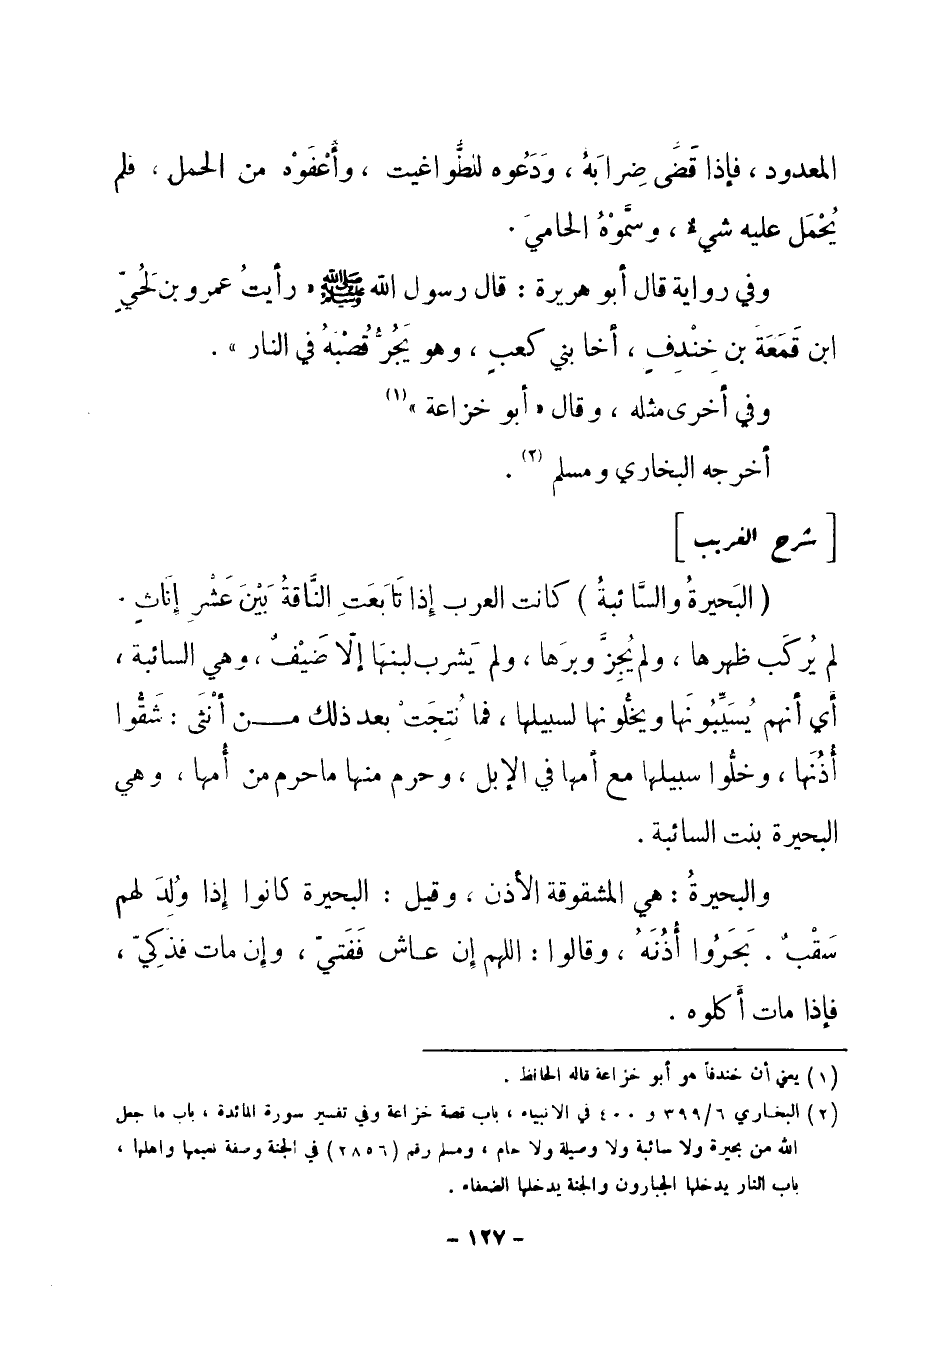 المعدود ، فإذا قَضَى ضِرابَهُ ، وَدَعُوه للطَّواغيت ، وأَعْفَوْه من الحمل ، فلم
يُحْمَل عليه شيء ، وسمَّوْهُ الحاميَ .
وفي رواية قال أبو هريرة : قال رسول الله ﷺ « رأيتُ عمرو بن لُحَيٍّ
ابن قَمَعَةَ بن خِنْدِفٍ ، أخا بني كعبٍ ، وهو يَجُرُّ قُصْبَهُ في النار » .
وفي أخرى مثله ، وقال « أبو خزاعة »(١)
أخرجه البخاري ومسلم (٢) .
[ شرح الغريب ]
( البَحيرةُ والسَّائبةُ ) كانت العرب إذا تَابَعَتِ النَّاقةُ بَيْنَ عَشْرِ إِنَاثٍ .
لم يُركَب ظهرها ، ولم يُجزَّ وبرَها ، ولم يَشرب لبنهَا إلّا ضَيْفٌ ، وهي السائبة ،
أي أنهم يُسَيِّبُونَها ويخلُّونها لسبيلها ، فما نُتِجَتْ بعد ذلك مـن أُنْثَى : شَقُّوا
أُذُنَها ، وخلُّوا سبيلها مع أمها في الإبل ، وحرم منها ما حرم من أُمها ، وهي
البحيرة بنت السائبة .
والبحيرةُ : هي المشقوقة الأذن ، وقيل : البحيرة كانوا إذا وُلِدَ لهم
سَقْبٌ . بَحَرُوا أُذُنَهُ ، وقالوا : اللهم إن عـاش فَفَتيّ ، وإن مات فذَكِيّ ،
فإذا مات أكلوه .
(١) يعني أن خندفاً هو أبو خزاعة قاله الحافظ .
(٢) البخاري ٣٩٩/٦ و ٤٠٠ في الانبياء ، باب قصة خزاعة وفي تفسير سورة المائدة ، باب ما جعل
الله من بحيرة ولا سائبة ولا وصيلة ولا حام ، ومسلم رقم (٢٨٥٦) في الجنة وصفة نعيمها واهلها ،
باب النار يدخلها الجبارون والجنة يدخلها الضعفاء .
- ١٢٧ -